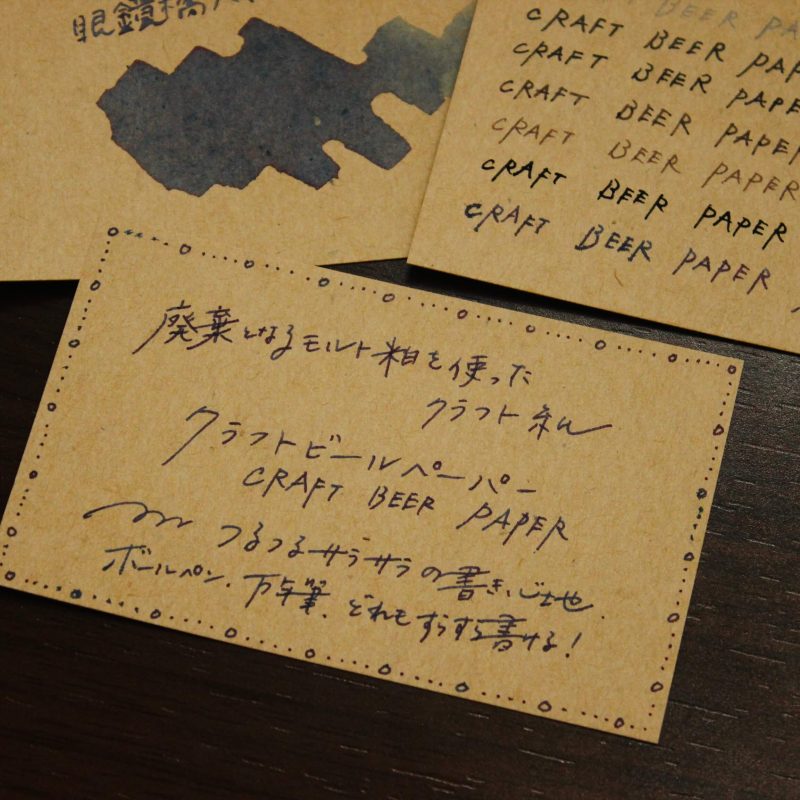 眼鏡橋
CRAFT BEER PAP
CRAFT BEER PAPE
CRAFT BEER PAPE
CRAFT BEER PAPER
CRAFT BEER PAPER
CRAFT BEER PAPER
CRAFT BEER PAPER
廃棄となるモルト粕を使った
クラフト紙
クラフトビールペーパー
CRAFT BEER PAPER
つるつるサラサラの書き心地.
ボールペン.万年筆.どれもすらすら書ける!